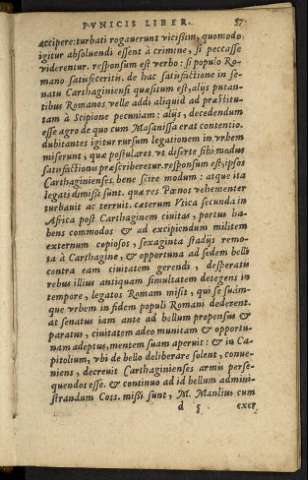 PVNICIS LIBER. 57
accipere: turbati rogauerunt vicissim, quomodo
igitur absoluendi essent à crimine, si peccasse
viderentur. responsum est verbo: si populo Ro-
mano satisfeceritis. de hac satisfactione in se-
natu Carthaginiensi quæsitum est, alijs putan-
tibus Romanos velle addi aliquid ad præstitu-
tam à Scipione pecuniam: alijs, decedendum
esse agro de quo cum Masanissa erat contentio.
dubitantes igitur rursum legationem in vrbem
miserunt, quæ postularet vt diserte sibi modus
satisfactionis præscriberetur. responsum est, ipsos
Carthaginienses bene scire modum: atque ita
legati dimissi sunt. quæ res Pœnos vehementer
turbauit ac terruit. cæterum Vtica secunda in
Africa post Carthaginem ciuitas, portus ha-
bens commodos & ad excipiendum militem
externum copiosos, sexaginta stadijs remo-
ta à Carthagine, & opportuna ad sedem belli
contra eam ciuitatem gerendi, desperatis
rebus illius antiquam simultatem detegens in
tempore, legatos Romam misit, qui se suám-
que vrbem in fidem populi Romani dederent.
at senatus iam ante ad bellum propensus &
paratus, ciuitatem adeo munitam & opportu-
nam adeptus, mentem suam aperuit: & in Ca-
pitolium, vbi de bello deliberare solent, conue-
niens, decreuit Carthaginienses armis perse-
quendos esse. & continuo ad id bellum admini-
strandum Coss. missi sunt, M. Manlius cum
d 5 exer